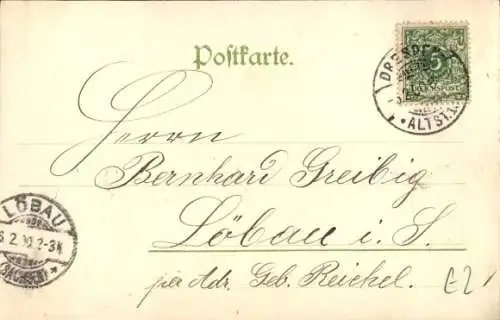 Postkarte.
DRESDEN
5
ALTST. 1.
Herrn
Bernhard Greibig
Löbau i. S.
per Adr. Geb. Reichel.
LÖBAU
(SACHSEN)
E2